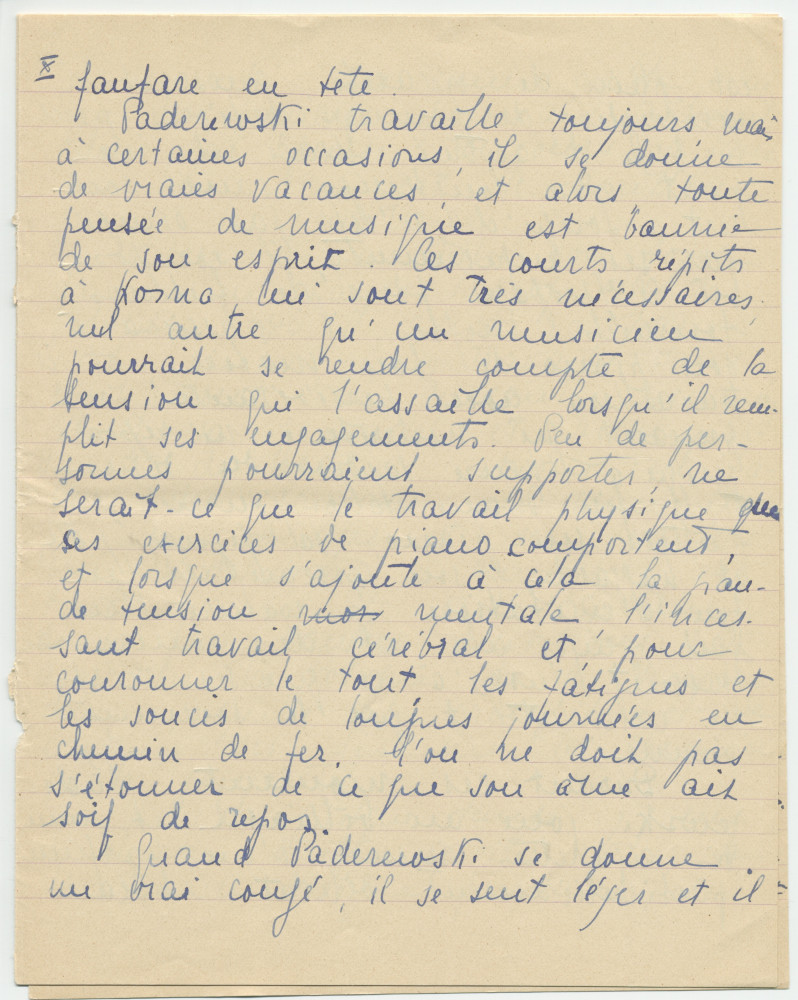 X
fanfare en tête.
Paderewski travaille toujours mais
à certaines occasions, il se donne
de vraies vacances, et alors toute
pensée de musique est bannie
de son esprit. Ces courts répits
à Kosna lui sont très nécessaires.
nul autre qu'un musicien
pourrait se rendre compte de la
tension qui l'assaille lorsqu'il rem-
plit ses engagements. Peu de per-
sonnes pourraient supporter, ne
serait-ce que le travail physique que
ses exercices de piano comportent,
et lorsque s'ajoute à cela la gran-
de tension mentale l'inces-
sant travail cérébral et, pour
couronner le tout, les fatigues et
les soucis de longues journées en
chemin de fer, l'on ne doit pas
s'étonner de ce que son âme ait
soif de repos.
Quand Paderewski se donne
un vrai congé, il se sent léger et il